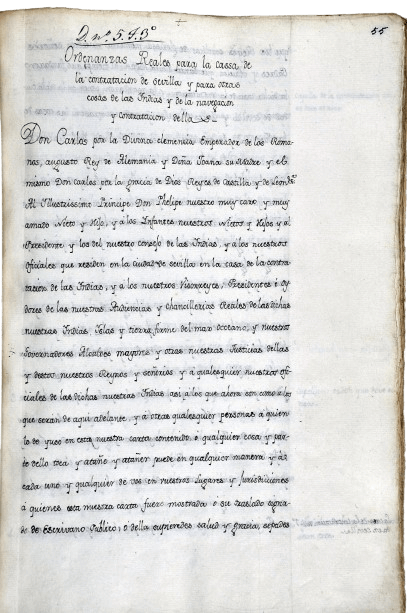 D. nº. 543º
55
Ordenanzas Reales para la cassa de
la contratacion de sevilla y para otras
cosas de las Indias y de la navegacion
y contratacion della
Don Carlos por la Divina clemencia Emperador de los Roma-
nos, augusto Rey de Alemania y Doña Joana su Madre y el
mismo Don carlos por la gracia de Dios Reyes de Castilla y de Leon &ª
Al Illustrissimo Principe Don Phelipe nuestro muy caro y muy
amado Nieto y Hijo, y a los Infantes nuestros Nietos y Hijos y al
Presidente y los del nuestro consejo de las Indias, y a los nuestros
Oficiales que residen en la ciudad de sevilla en la casa de la contra-
tacion de las Indias, y a los nuestros Visorreyes, Presidentes i Oy-
dores de las nuestras Audiencias y chancillerias Reales de las dichas
nuestras Indias Islas y tierra firme del mar oceano, y nuestros
Governadores Alcaldes mayores y otras nuestras Justicias dellas
y destos nuestros Reynos y señorios y á qualesquier nuestros ofi-
ciales de las dichas nuestras Indias asi á los que ahora son como á los
que seran de aqui adelante, y a otras qualesquier personas á quien
lo de yuso en esta nuestra carta contenido, o qualquier cosa y par-
te dello toca y atañe y atañer puede en qualquier manera y á
cada uno y qualquier de vos en vuestros Lugares y Jurisdiciones
á quienes esta nuestra carta fuere mostrada o su traslado signa-
do de Escrivano Publico, o della supieredes salud y gracia, sepades